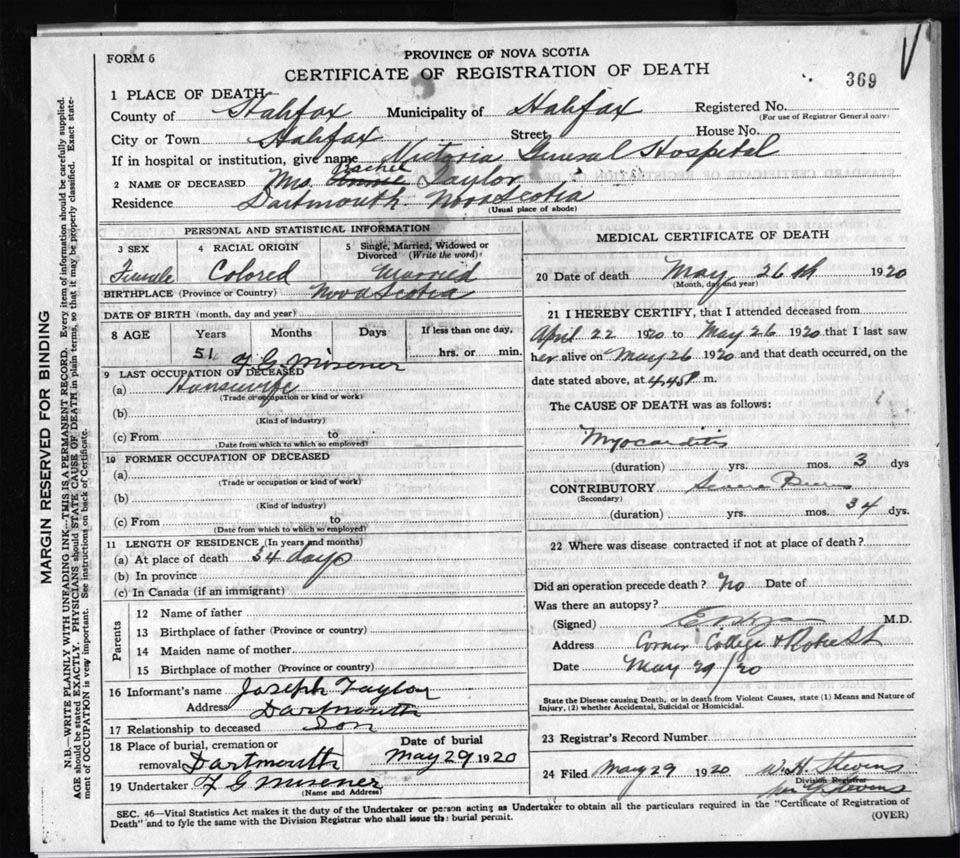 FORM 6
PROVINCE OF NOVA SCOTIA
CERTIFICATE OF REGISTRATION OF DEATH
369
1 PLACE OF DEATH
County of Halifax Municipality of Halifax Registered No.
(For use of Registrar General only)
City or Town Halifax Street House No.
If in hospital or institution, give name Victoria General Hospital
2 NAME OF DECEASED Mrs. Rachel Taylor
Residence Dartmouth Nova Scotia
(Usual place of abode)
PERSONAL AND STATISTICAL INFORMATION
3 SEX 4 RACIAL ORIGIN 5 Single, Married, Widowed or Divorced (Write the word)
Female Colored Married
BIRTHPLACE (Province or Country) Nova Scotia
DATE OF BIRTH (month, day and year)
8 AGE Years Months Days If less than one day,
51 hrs. or min.
F G Misener
9 LAST OCCUPATION OF DECEASED
(a) Housewife
(Trade or occupation or kind of work)
(b)
(Kind of industry)
(c) From to
(Date from which to which so employed)
10 FORMER OCCUPATION OF DECEASED
(a)
(Trade or occupation or kind of work)
(b)
(Kind of industry)
(c) From to
(Date from which to which so employed)
11 LENGTH OF RESIDENCE (In years and months)
(a) At place of death 34 days
(b) In province
(c) In Canada (if an immigrant)
Parents
12 Name of father
13 Birthplace of father (Province or country)
14 Maiden name of mother
15 Birthplace of mother (Province or country)
16 Informant's name Joseph Taylor
Address Dartmouth
17 Relationship to deceased Son
18 Place of burial, cremation or removal Dartmouth Date of burial May 29 1920
19 Undertaker F G Misener
(Name and Address)
MEDICAL CERTIFICATE OF DEATH
20 Date of death May 26th 1920
(Month, day and year)
21 I HEREBY CERTIFY, that I attended deceased from
April 22 1920 to May 26 1920 that I last saw
her alive on May 26 1920 and that death occurred, on the
date stated above, at 4.45 P m.
The CAUSE OF DEATH was as follows:
Myocarditis
(duration) yrs. mos. 3 dys
CONTRIBUTORY Severe Burns
(Secondary)
(duration) yrs. mos. 34 dys.
22 Where was disease contracted if not at place of death?
Did an operation precede death? No Date of
Was there an autopsy?
(Signed) M.D.
Address Corner College & Robie St
Date May 29/20
State the Disease causing Death, or in death from Violent Causes, state (1) Means and Nature of
Injury, (2) whether Accidental, Suicidal or Homicidal.
23 Registrar's Record Number
24 Filed May 29 1920 W. H. Stevens
Division Registrar
per Stevens
SEC. 46—Vital Statistics Act makes it the duty of the Undertaker or person acting as Undertaker to obtain all the particulars required in the "Certificate of Registration of
Death" and to fyle the same with the Division Registrar who shall issue the burial permit.
(OVER)
MARGIN RESERVED FOR BINDING
N.B.—WRITE PLAINLY WITH UNFADING INK—THIS IS A PERMANENT RECORD. Every item of information should be carefully supplied.
AGE should be stated EXACTLY. PHYSICIANS should STATE CAUSE OF DEATH in plain terms, so that it may be properly classified. Exact state-
ment of OCCUPATION is very important. See instructions on back of Certificate.